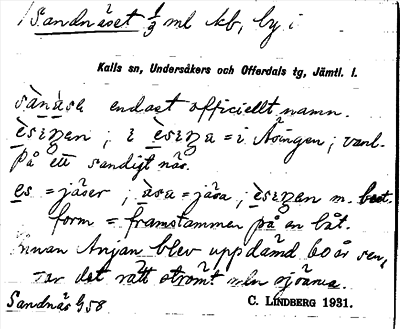 Sandnäset 1/9 ml kb, by i
Kalls sn, Undersåkers och Offerdals tg, Jämtl. l.
sànàsa endast officiellt namn.
èsiŋen ; i èsiŋa = i Åsingen ; vanl.
på ett sandigt näs.
es = jäser ; àsa = jäsa ; èsiŋen m. best.
form = framstammen på en båt.
innan Anjan blev uppdämd 60 år sen,
var det rätt strömt
Sandnäs G58 C. LINDBERG 1931.